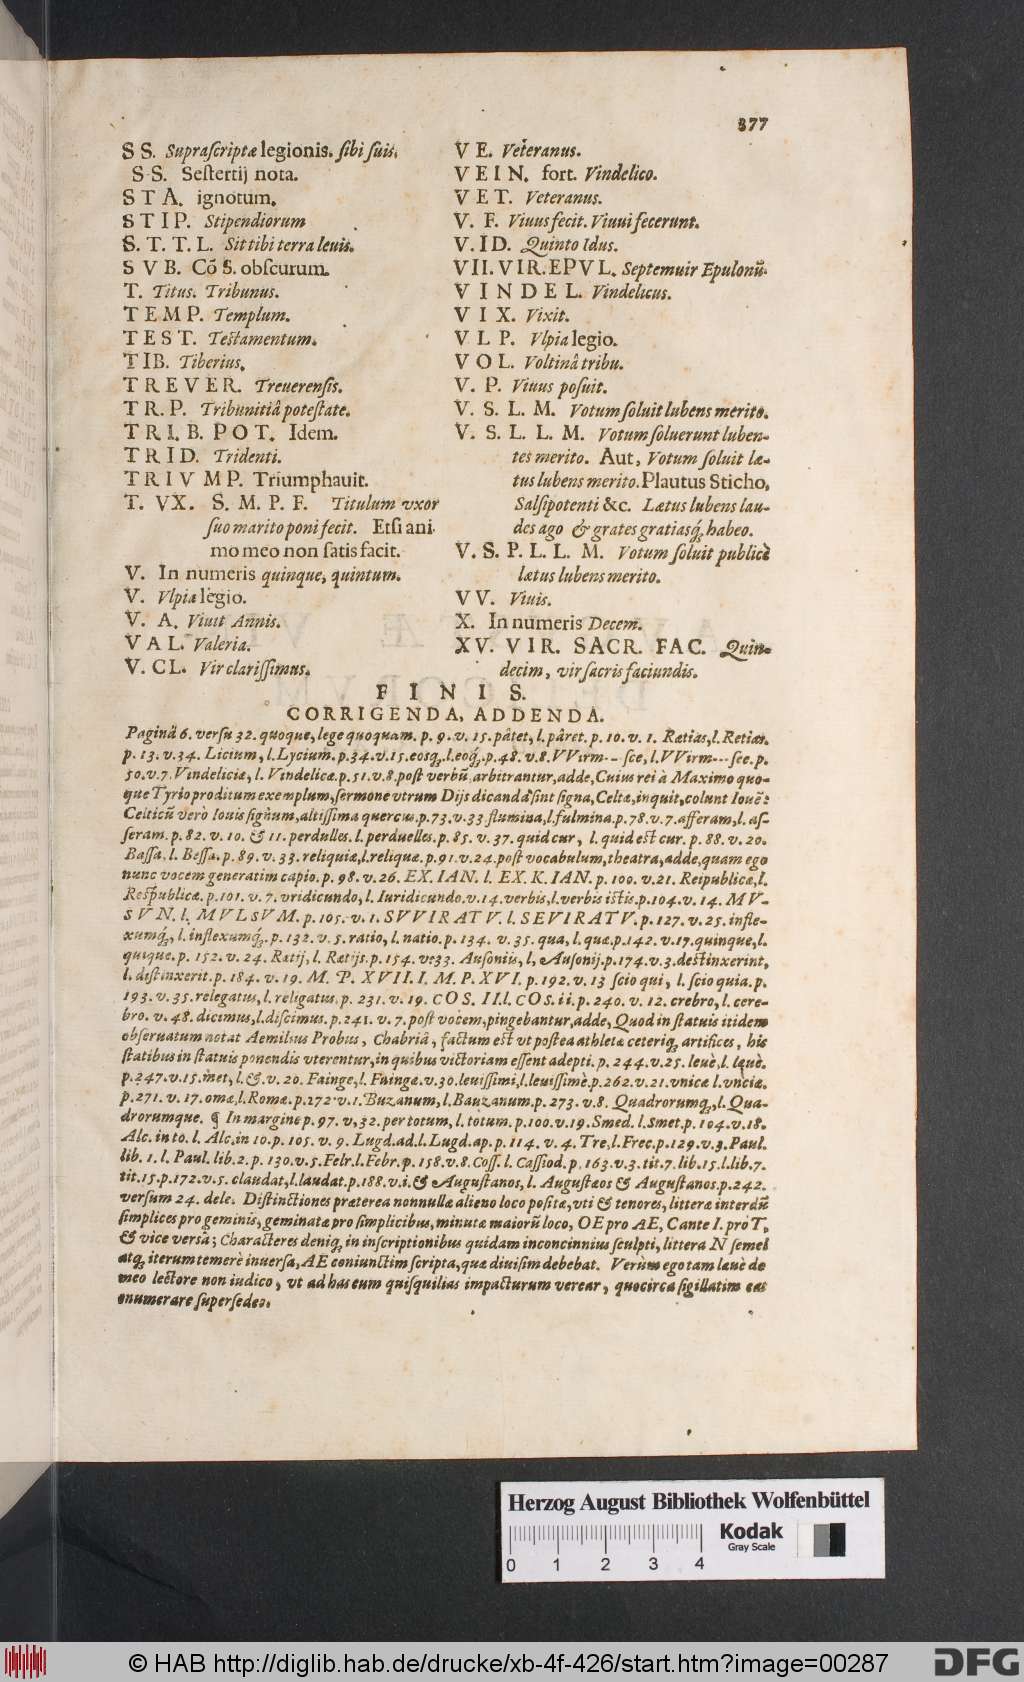 377
S S. Supraſcriptæ legionis. ſibi ſuis.
S S. Seſtertij nota.
S T A. ignotum.
S T I P. Stipendiorum
S. T. T. L. Sit tibi terra leuis.
S V B. Cõ S. obſcurum.
T. Titus. Tribunus.
T E M P. Templum.
T E S T. Teſtamentum.
T IB. Tiberius.
T R E V E R. Treuerenſis.
T R. P. Tribunitiâ poteſtate.
T R I. B. P O T. Idem.
T R I D. Tridenti.
T R I V M P. Triumphauit.
T. VX. S. M. P. F. Titulum vxor
ſuo marito poni fecit. Etſi ani
mo meo non ſatis facit.
V. In numeris quinque, quintum.
V. Vlpia legio.
V. A. Viuit Annis.
V A L. Valeria.
V. CL. Vir clariſſimus.
V E. Veteranus.
V E I N. fort. Vindelico.
V E T. Veteranus.
V. F. Viuus fecit. Viuui fecerunt.
V. ID. Quinto Idus.
VII. VIR. EPVL. Septemuir Epulonũ.
V I N D E L. Vindelicus.
V I X. Vixit.
V L P. Vlpia legio.
V O L. Voltinâ tribu.
V. P. Viuus poſuit.
V. S. L. M. Votum ſoluit lubens merito.
V. S. L. L. M. Votum ſoluerunt luben-
tes merito. Aut, Votum ſoluit læ-
tus lubens merito. Plautus Sticho,
Salſipotenti &c. Lætus lubens lau-
des ago & grates gratiasq; habeo.
V. S. P. L. L. M. Votum ſoluit publicè
lætus lubens merito.
V V. Viuis.
X. In numeris Decem.
XV. VIR. SACR. FAC. Quin-
decim, vir ſacris faciundis.
F I N I S.
CORRIGENDA, ADDENDA.
Paginâ 6. verſu 32. quoque, lege quoquam. p. 9. v. 15. pâtet, l. pâret. p. 10. v. 1. Rætias, l. Retias.
p. 13. v. 34. Licium, l. Lycium. p. 34. v. 15. eosq;. l. eoq;. p. 48. v. 8. VVirm--- ſce, l. VVirm--- ſee. p.
50. v. 7. Vindeliciæ, l. Vindelicæ. p. 51. v. 8. poſt verbũ, arbitrantur, adde, Cuius rei à Maximo quo-
que Tyrio proditum exemplum, ſermone vtrum Dijs dicanda ſint ſigna, Celtæ, inquit, colunt Iouē:
Celticũ verò Iouis ſignum, altiſſima quercus. p. 73. v. 33 flumina, l. fulmina. p. 78. v. 7. afferam, l. aſ-
ſeram. p. 82. v. 10. & 11. perdulles. l. perduelles. p. 85. v. 37. quid cur, l. quid eſt cur. p. 88. v. 20.
Baſſa, l. Beſſa. p. 89. v. 33. reliquiæ, l. reliquæ. p. 91. v. 24. poſt vocabulum, theatra, adde, quam ego
nunc vocem generatim capio. p. 98. v. 26. EX. IAN. l. EX. K. IAN. p. 100. v. 21. Reipublicæ, l.
Reſpublicæ. p. 101. v. 7. vridicundo, l. Iuridicundo. v. 14. verbis, l. verbis iſtis. p. 104. v. 14. M V-
S V N. l. M V L S V M. p. 105. v. 1. S V V I R A T V. l. S E V I R A T V. p. 127. v. 25. infle-
xumq;, l. inflexumq;. p. 132. v. 5. ratio, l. natio. p. 134. v. 35. qua, l. quæ. p. 142. v. 17. quinque, l.
quique. p. 152. v. 24. Ratij, l. Rætijs. p. 154. v. 33. Auſoniis, l. Auſonij. p. 174. v. 3. deſtinxerint,
l. diſtinxerit. p. 184. v. 19. M. P. XVII. I. M. P. XVI. p. 192. v. 13 ſcio qui, l. ſcio quia. p.
193. v. 35. relegatus, l. religatus. p. 231. v. 19. COS. II. l. COS. ii. p. 240. v. 12. crebro, l. cere-
bro. v. 48. dicimus, l. diſcimus. p. 241. v. 7. poſt vocem, pingebantur, adde, Quod in ſtatuis itidem
obſeruatum notat Aemilius Probus, Chabriâ, factum eſt vt poſtea athletæ ceteriq; artifices, his
ſtatibus in ſtatuis ponendis vterentur, in quibus victoriam eſſent adepti. p. 244. v. 25. leuè, l. læuè.
p. 247. v. 15. met, l. &. v. 20. Fainge, l. Faingæ. v. 30. leuiſſimi, l. leuiſſimè. p. 262. v. 21. vnicæ l. vnciæ.
p. 271. v. 17. omæ, l. Romæ. p. 272. v. 1. Buzanum, l. Bauzanum. p. 273. v. 8. Quadrorumq;, l. Qua-
drorumque. ¶ In margine p. 97. v. 32. per totum, l. totum. p. 100. v. 19. Smed. l. Smet. p. 104. v. 18.
Alc. in to. l. Alc. in 10. p. 105. v. 9. Lugd. ad. l. Lugd. ap. p. 114. v. 4. Tre, l. Frec. p. 129. v. 3. Paul.
lib. 1. l. Paul. lib. 2. p. 130. v. 5. Felr. l. Febr. p. 158. v. 8. Coſſ. l. Caſſiod. p. 163. v. 3. tit. 7. lib. 15. l. lib. 7.
tit. 15. p. 172. v. 5. claudat, l. laudat. p. 188. v. i. & Auguſtanos, l. Auguſtæos & Auguſtanos. p. 242.
verſum 24. dele. Diſtinctiones præterea nonnullæ alieno loco poſitæ, vti & tenores, litteræ interdũ
ſimplices pro geminis, geminatæ pro ſimplicibus, minutæ maiorũ loco, OE pro AE, C ante I. pro T,
& vice versâ; Characteres deniq; in inſcriptionibus quidam inconcinnius ſculpti, littera N ſemel
atq; iterum temerè inuerſa, AE coniunctim ſcripta, quæ diuiſim debebat. Verùm ego tam læuè de
meo lectore non iudico, vt ad has eum quiſquilias impacturum verear, quocirca ſigillatim eas
enumerare ſuperſedeo.
Herzog August Bibliothek Wolfenbüttel
Kodak
Gray Scale
0 1 2 3 4
© HAB http://diglib.hab.de/drucke/xb-4f-426/start.htm?image=00287
DFG